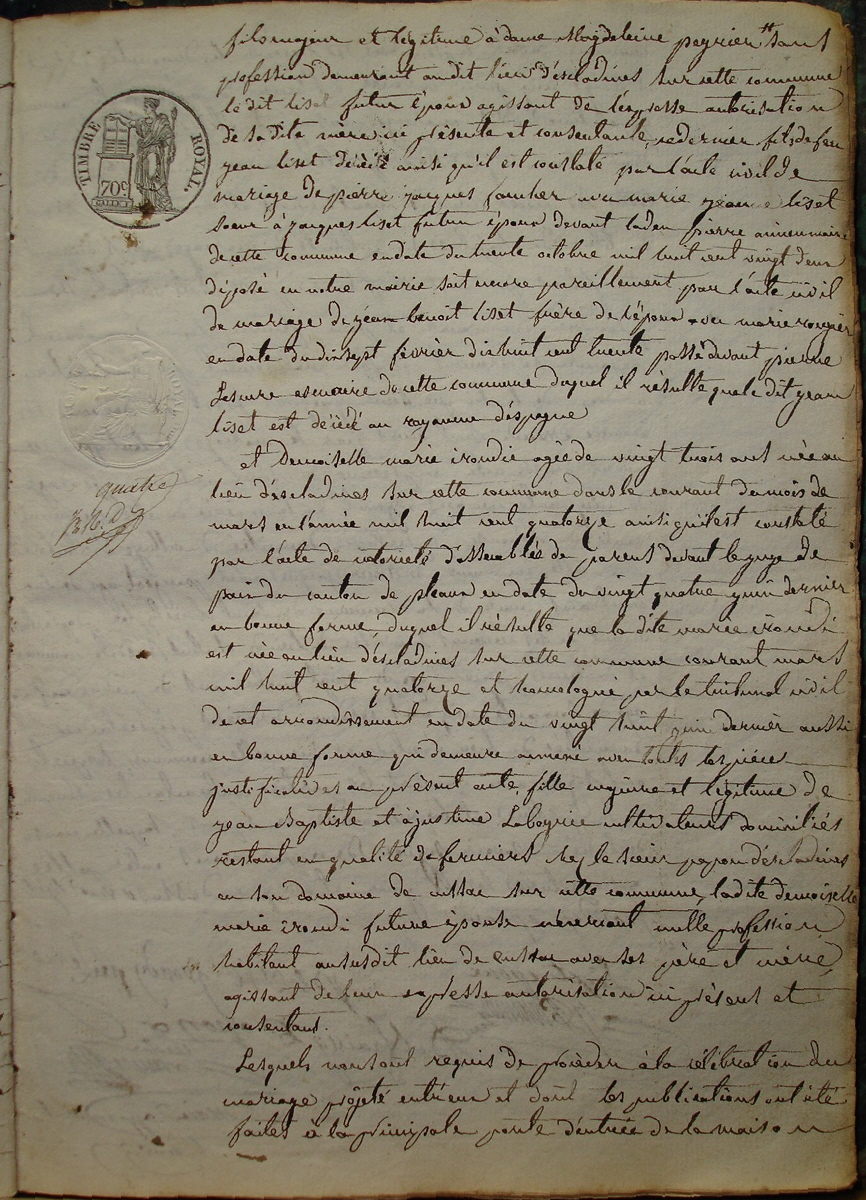 fils majeur et légitime à dame Magdeleine peyrier # sans
profession demeurant au dit lieu d'escladines sur cette commune
le dit liset futur épous agissant de l'expresse autorisation
de sa dite mère ici présente et consentante, ce dernier fils de feu
jean liset décédé ainsi qu'il est constaté par l'acte civil de
mariage de pierre jacques faucher avec marie jeanne liset
soeur à jacques liset futur épous devant pierre maire
de cette commune en date du trente octobre mil huit cent vingt deux
déposé en notre mairie soit encore pareillement par l'acte civil
de mariage de jean benoit liset frère de l'épous avec marie rongier
en date du dixsept février dixhuit cent trente passé devant pierre
Lescure exmaire de cette commune duquel il résulte que le dit jean
liset est décédé au royaume d'éspagne
et Demoiselle marie irondi agée de vingt trois ans née au
lieu d'éscladines sur cette commune dans le courant du mois de
mars en l'année mil huit cent quatorze ainsi qu'il est constaté
par l'acte de notoriété d'assemblée de parens devant le juge de
paix du canton de pleaux en date du vingt quatre juin dernier
en bonne forme, duquel il résulte que la dite marie irondi
est née au lieu d'éscladines sur cette commune courant mars
mil huit cent quatorze et homologué par le tribunal civil
de cet arrondissement en date du vingt huit juin dernier aussi
en bonne forme qui demeure annexé avec toutes les pièces
justificatives au présent acte, fille majeure et légitime de
jean Baptiste et à justine Laboyrie cultivateurs domiciliés
restant en qualité de fermiers chez le sieur papon d'éscladines
en son domaine de cussac sur cette commune, ladite demoiselle
marie irondi future épouse n'exercant nulle profession
habitant au susdit lieu de cussac avec ses père et mère,
agissant de leur expresse autorisation ici présens et
consentans.
Lesquels nous ont requis de procéder à la célébration du
mariage projeté entr'eux et dont les publications ont été
faites à la principale porte d'entrée de la maison
TIMBRE ROYAL
70c
quatre